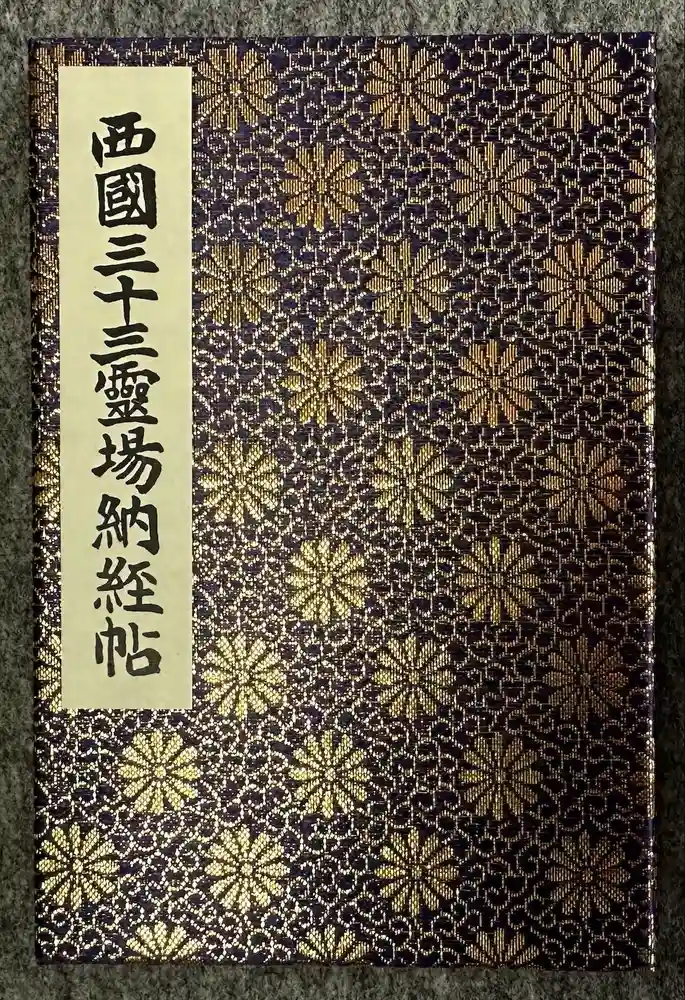 西國三十三靈場納経帖